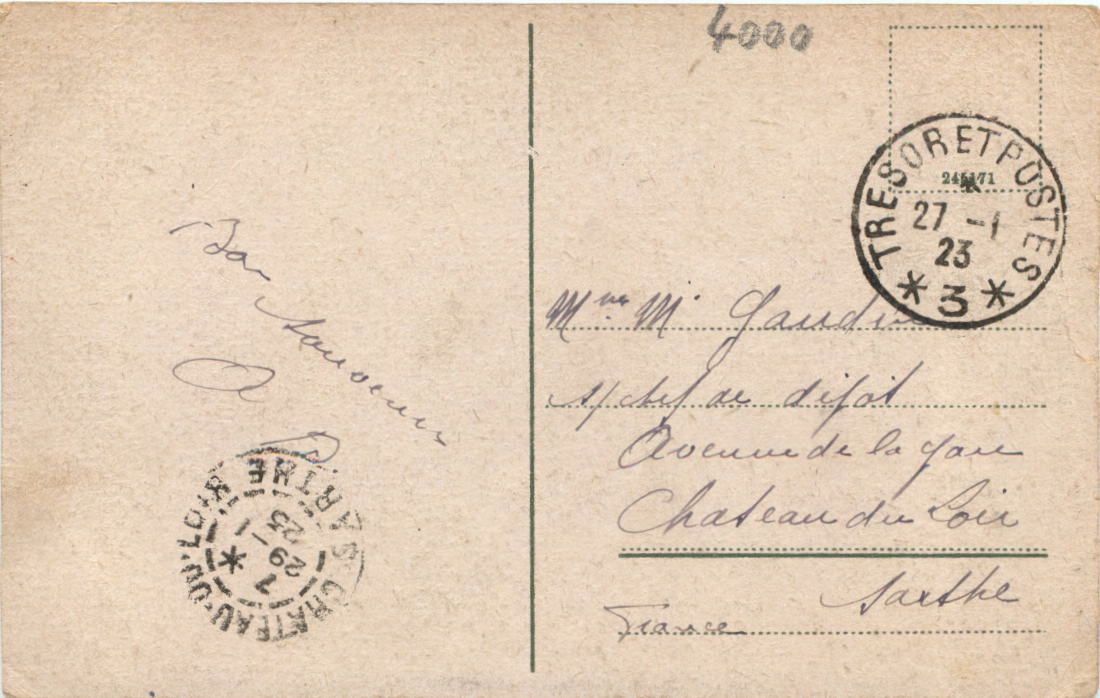 4000
TRESOR ET POSTES
245171
27 -1
23
* 3 *
Bon Souvenir
A
D
Mme M Gaudin
s/chef de dépôt
Avenue de la gare
Chateau du Loir
Sarthe
France
CHATEAU-DU-LOIR SARTHE
7
29-1
23
*